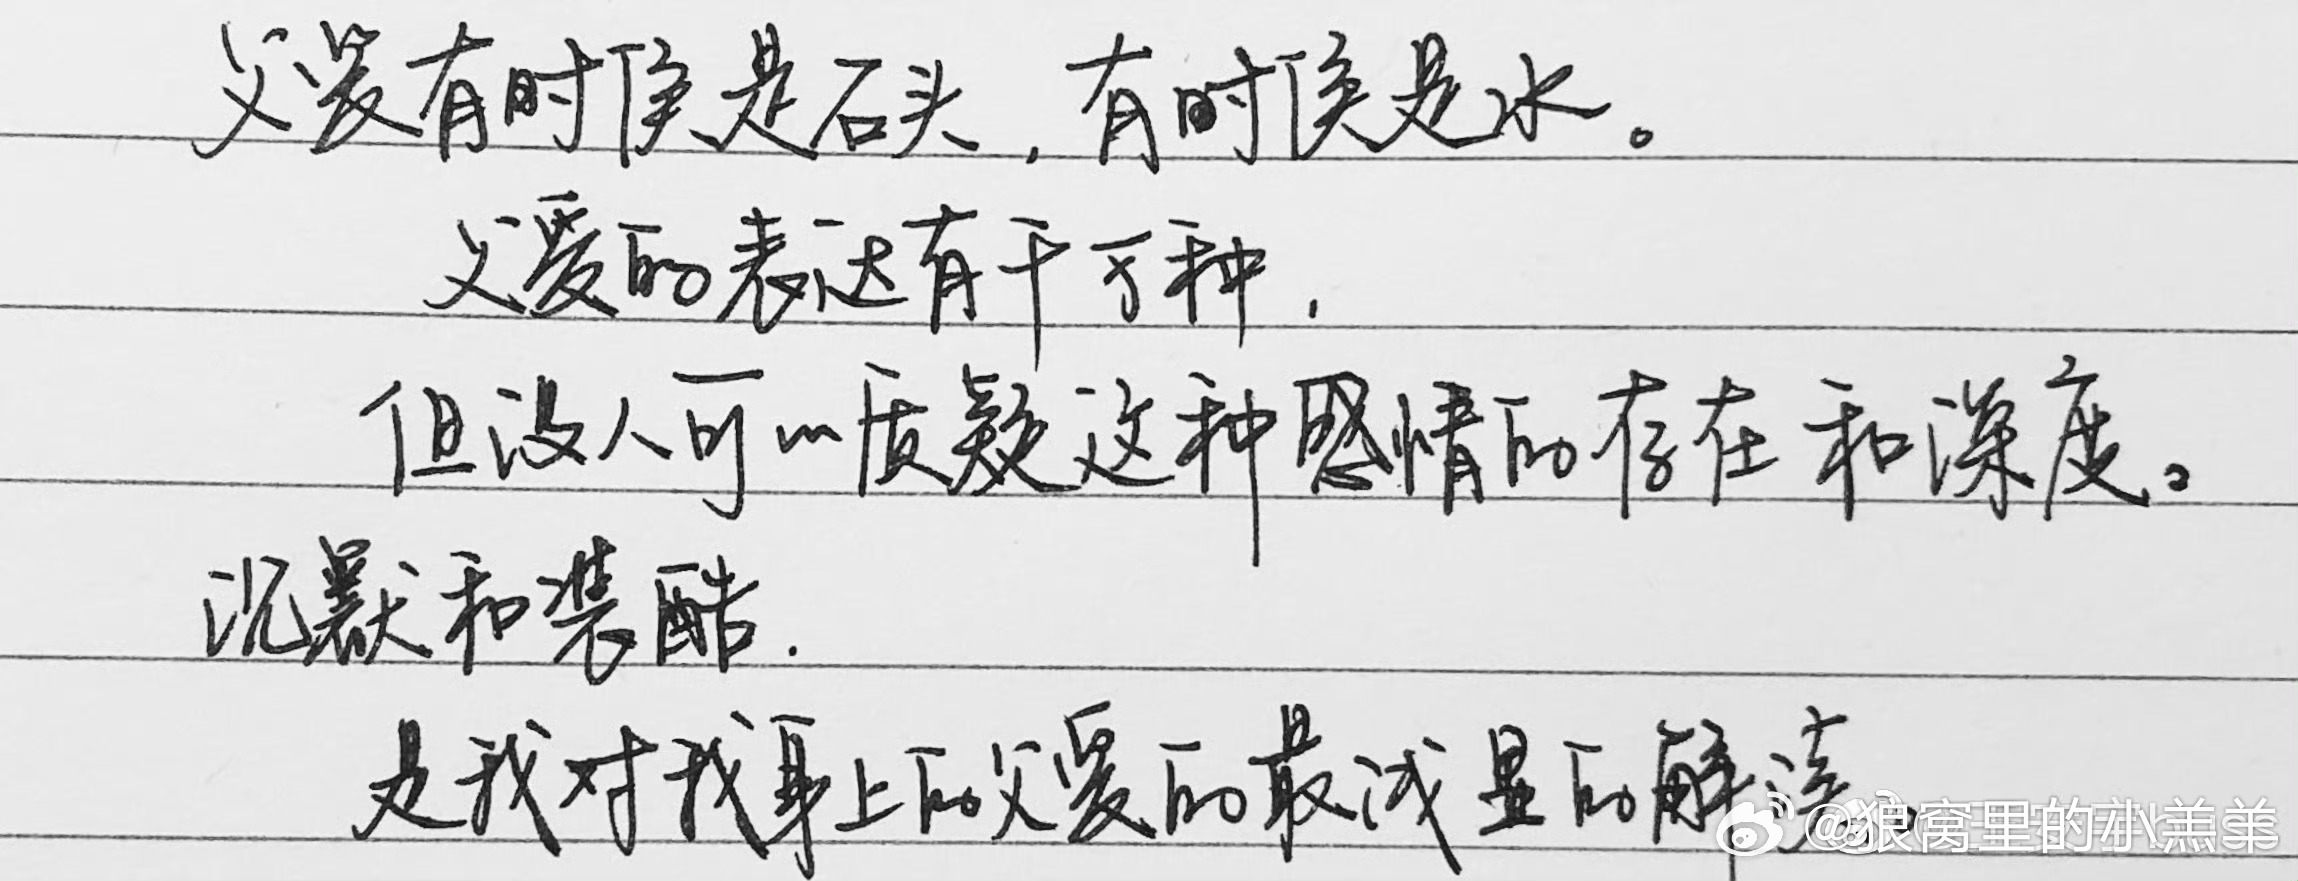 父爱有时候是石头，有时候是水。
父爱的表达有千万种，
但没人可以质疑这种感情的存在和深度。
沉默和装酷.
是我对我身上的父爱的最浅显的解读。
@狼窝里的小羔羊